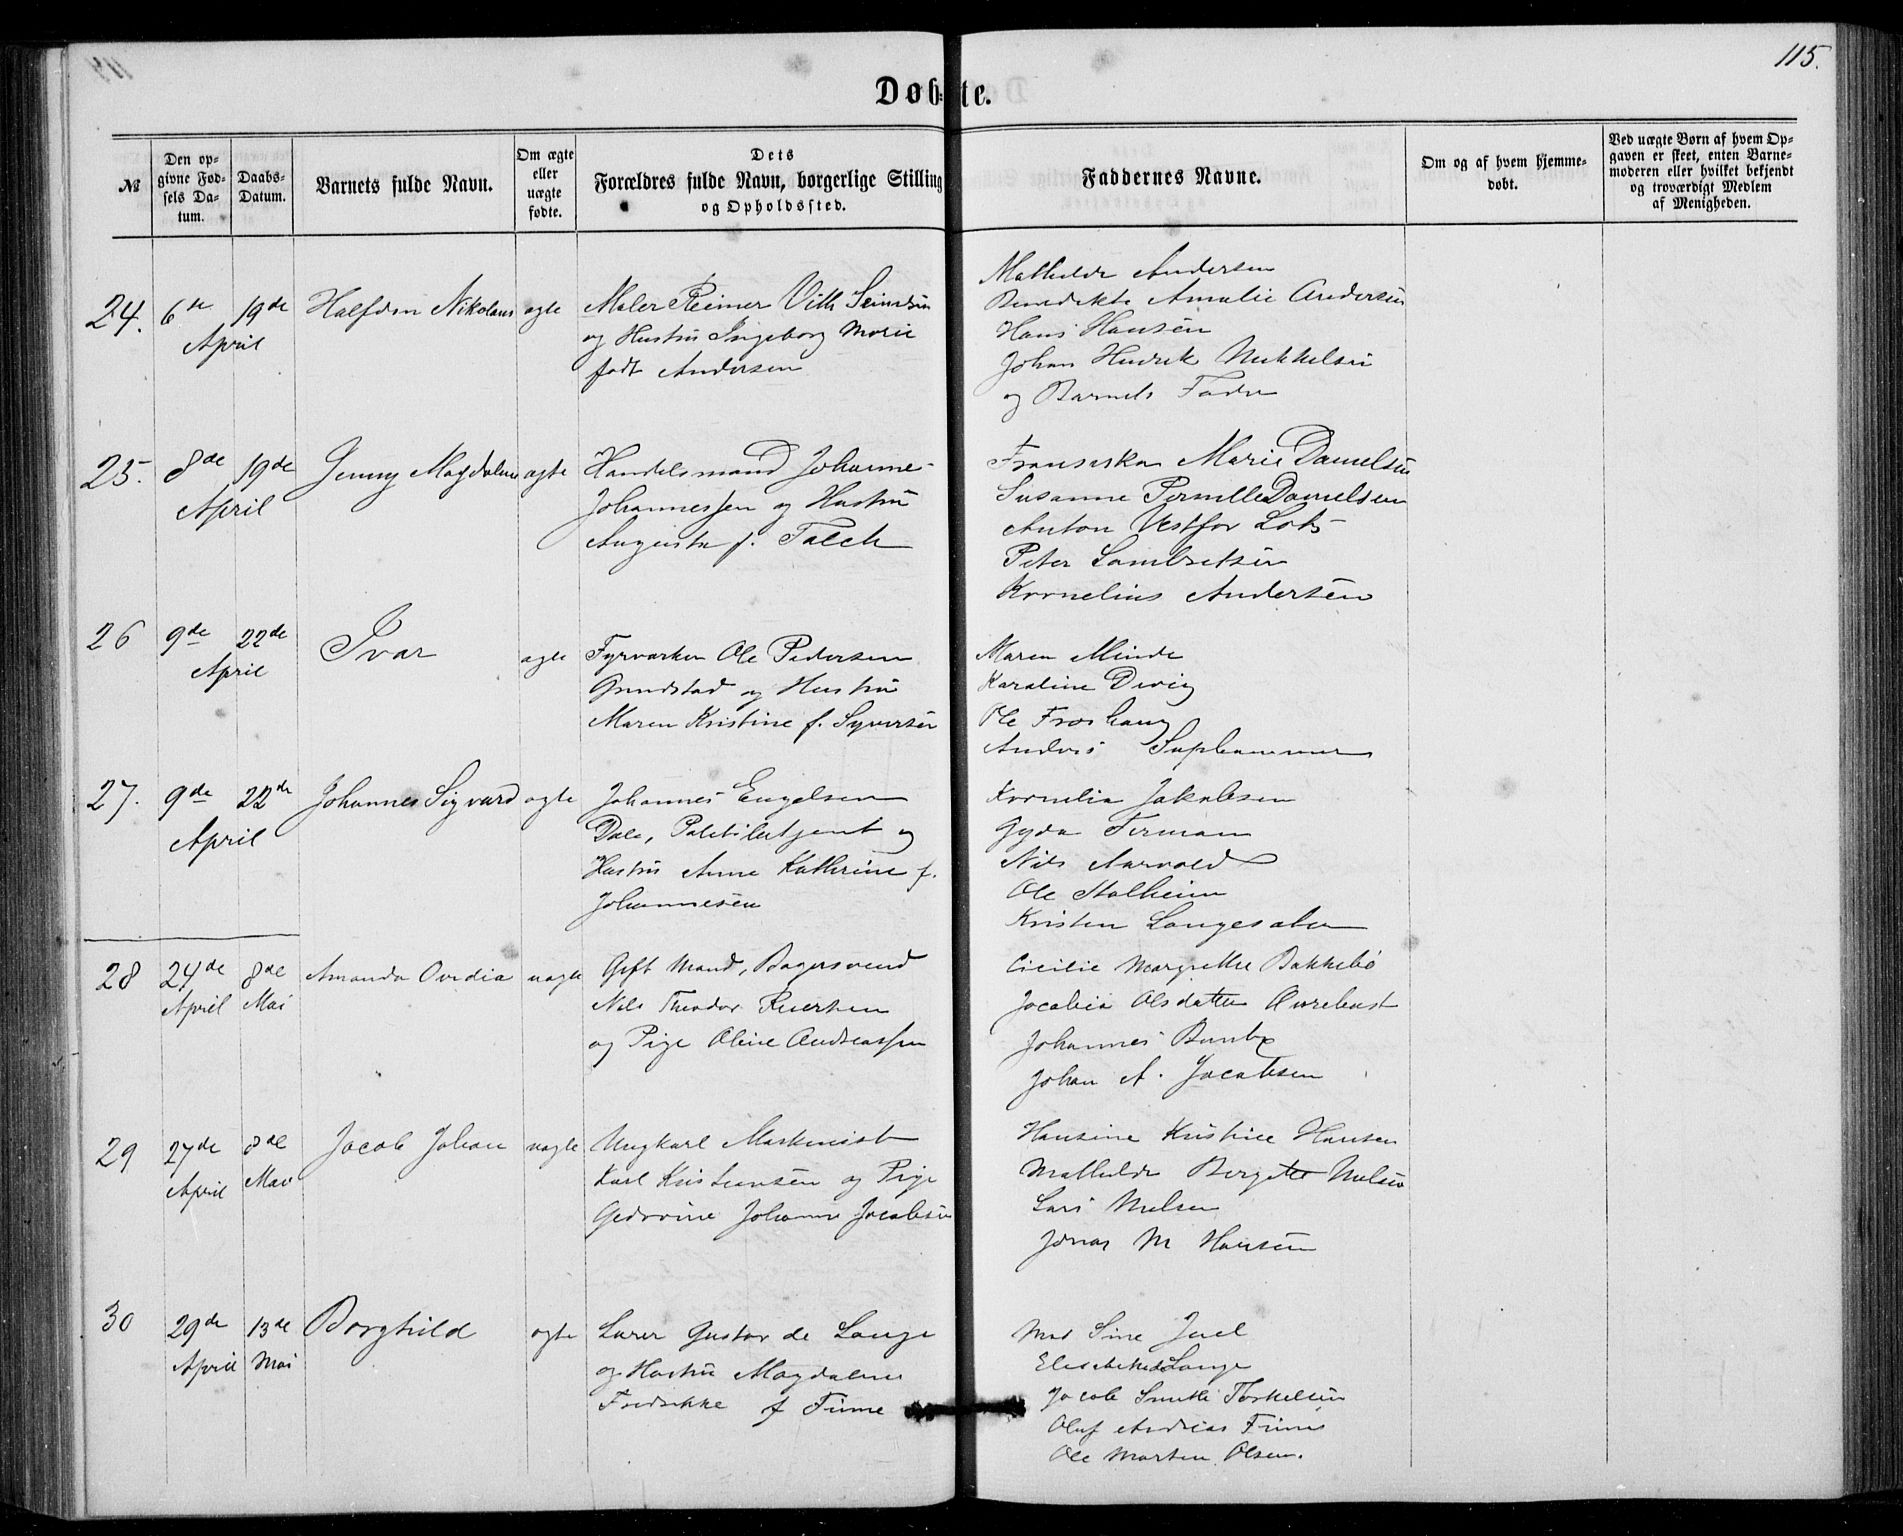 115.
Døbte.
№
Den opgivne Fødsels Datum.
Daabs-Datum.
Barnets fulde Navn.
Om ægte eller uægte fødte.
Dets Forældres fulde Navn, borgerlige Stilling og Opholdssted.
Faddernes Navne.
Om og af hvem hjemmedøbt.
Ved uægte Børn af hvem Opgaven er skeet, enten Barnemoderen eller hvilket bekjendt og troværdigt Medlem af Menigheden.
24. 6te April 19de Halfdan Nikolaus ægte
Maler Reimer Vith
og Hustru Ingeborg Marie
født Andersen
Mathilde Andersen
Benedikte Amalie Andersen
Hans Hansen
Johan Hendrik Mikkelsen
og Barnets Fader
25. 8de April 19de Jenny Magdalene ægte
Handelsmand Johanne-
Johannessen og Hustru
Augusta f. Falch
Fransiska Marie Danielsen
Susanne Pernille Danielsen
Anton Vestfor
Peter Lambretsen
Kornelius Andersen
26 9de April 22de Ivar ægte
Fyrværker Ole Pedersen
Grindstad og Hustru
Maren Kristine f. Syversen
Maren Minde
Karoline Devig
Ole Froshaug
Andreas
27. 9de April 22de Johannes Sigvard ægte
Johannes Engelsen
Dale, Politibetjent og
Hustru Anne Kathrine f.
Johannesen
Kornelia Jakobsen
Gyda Firman
Nils Aarvold
Ole Stalheim
Kristen Langesæter
28 24de April 8de Mai Amanda Ovidia uægte
Gift Mand, Bagersvend
Nils Theodor
og Pige Oline Andreassen
Cicilie Margrethe Bakkebø
Jacobia Olsdatter
Johannes
Johan A. Jacobsen
29 27de April 8de Mai Jacob Johan uægte
Ungkarl Maskinist
Karl Kristiansen og Pige
Gedovine Johanne Jacobsen
Hansine Kristine Hansen
Mathilde Birgitte Nielsen
Lars Nielsen
Jonas M Hansen
30 29de April 13de Mai Borghild ægte
Lærer Gustav de Lange
og Hustru Magdalene
Fredrikke f Finne
Mad Sine Juel
Elisabeth de Lange
Jacob Smith Torkelsen
Oluf Andreas Finne
Ole Morten Olsen.